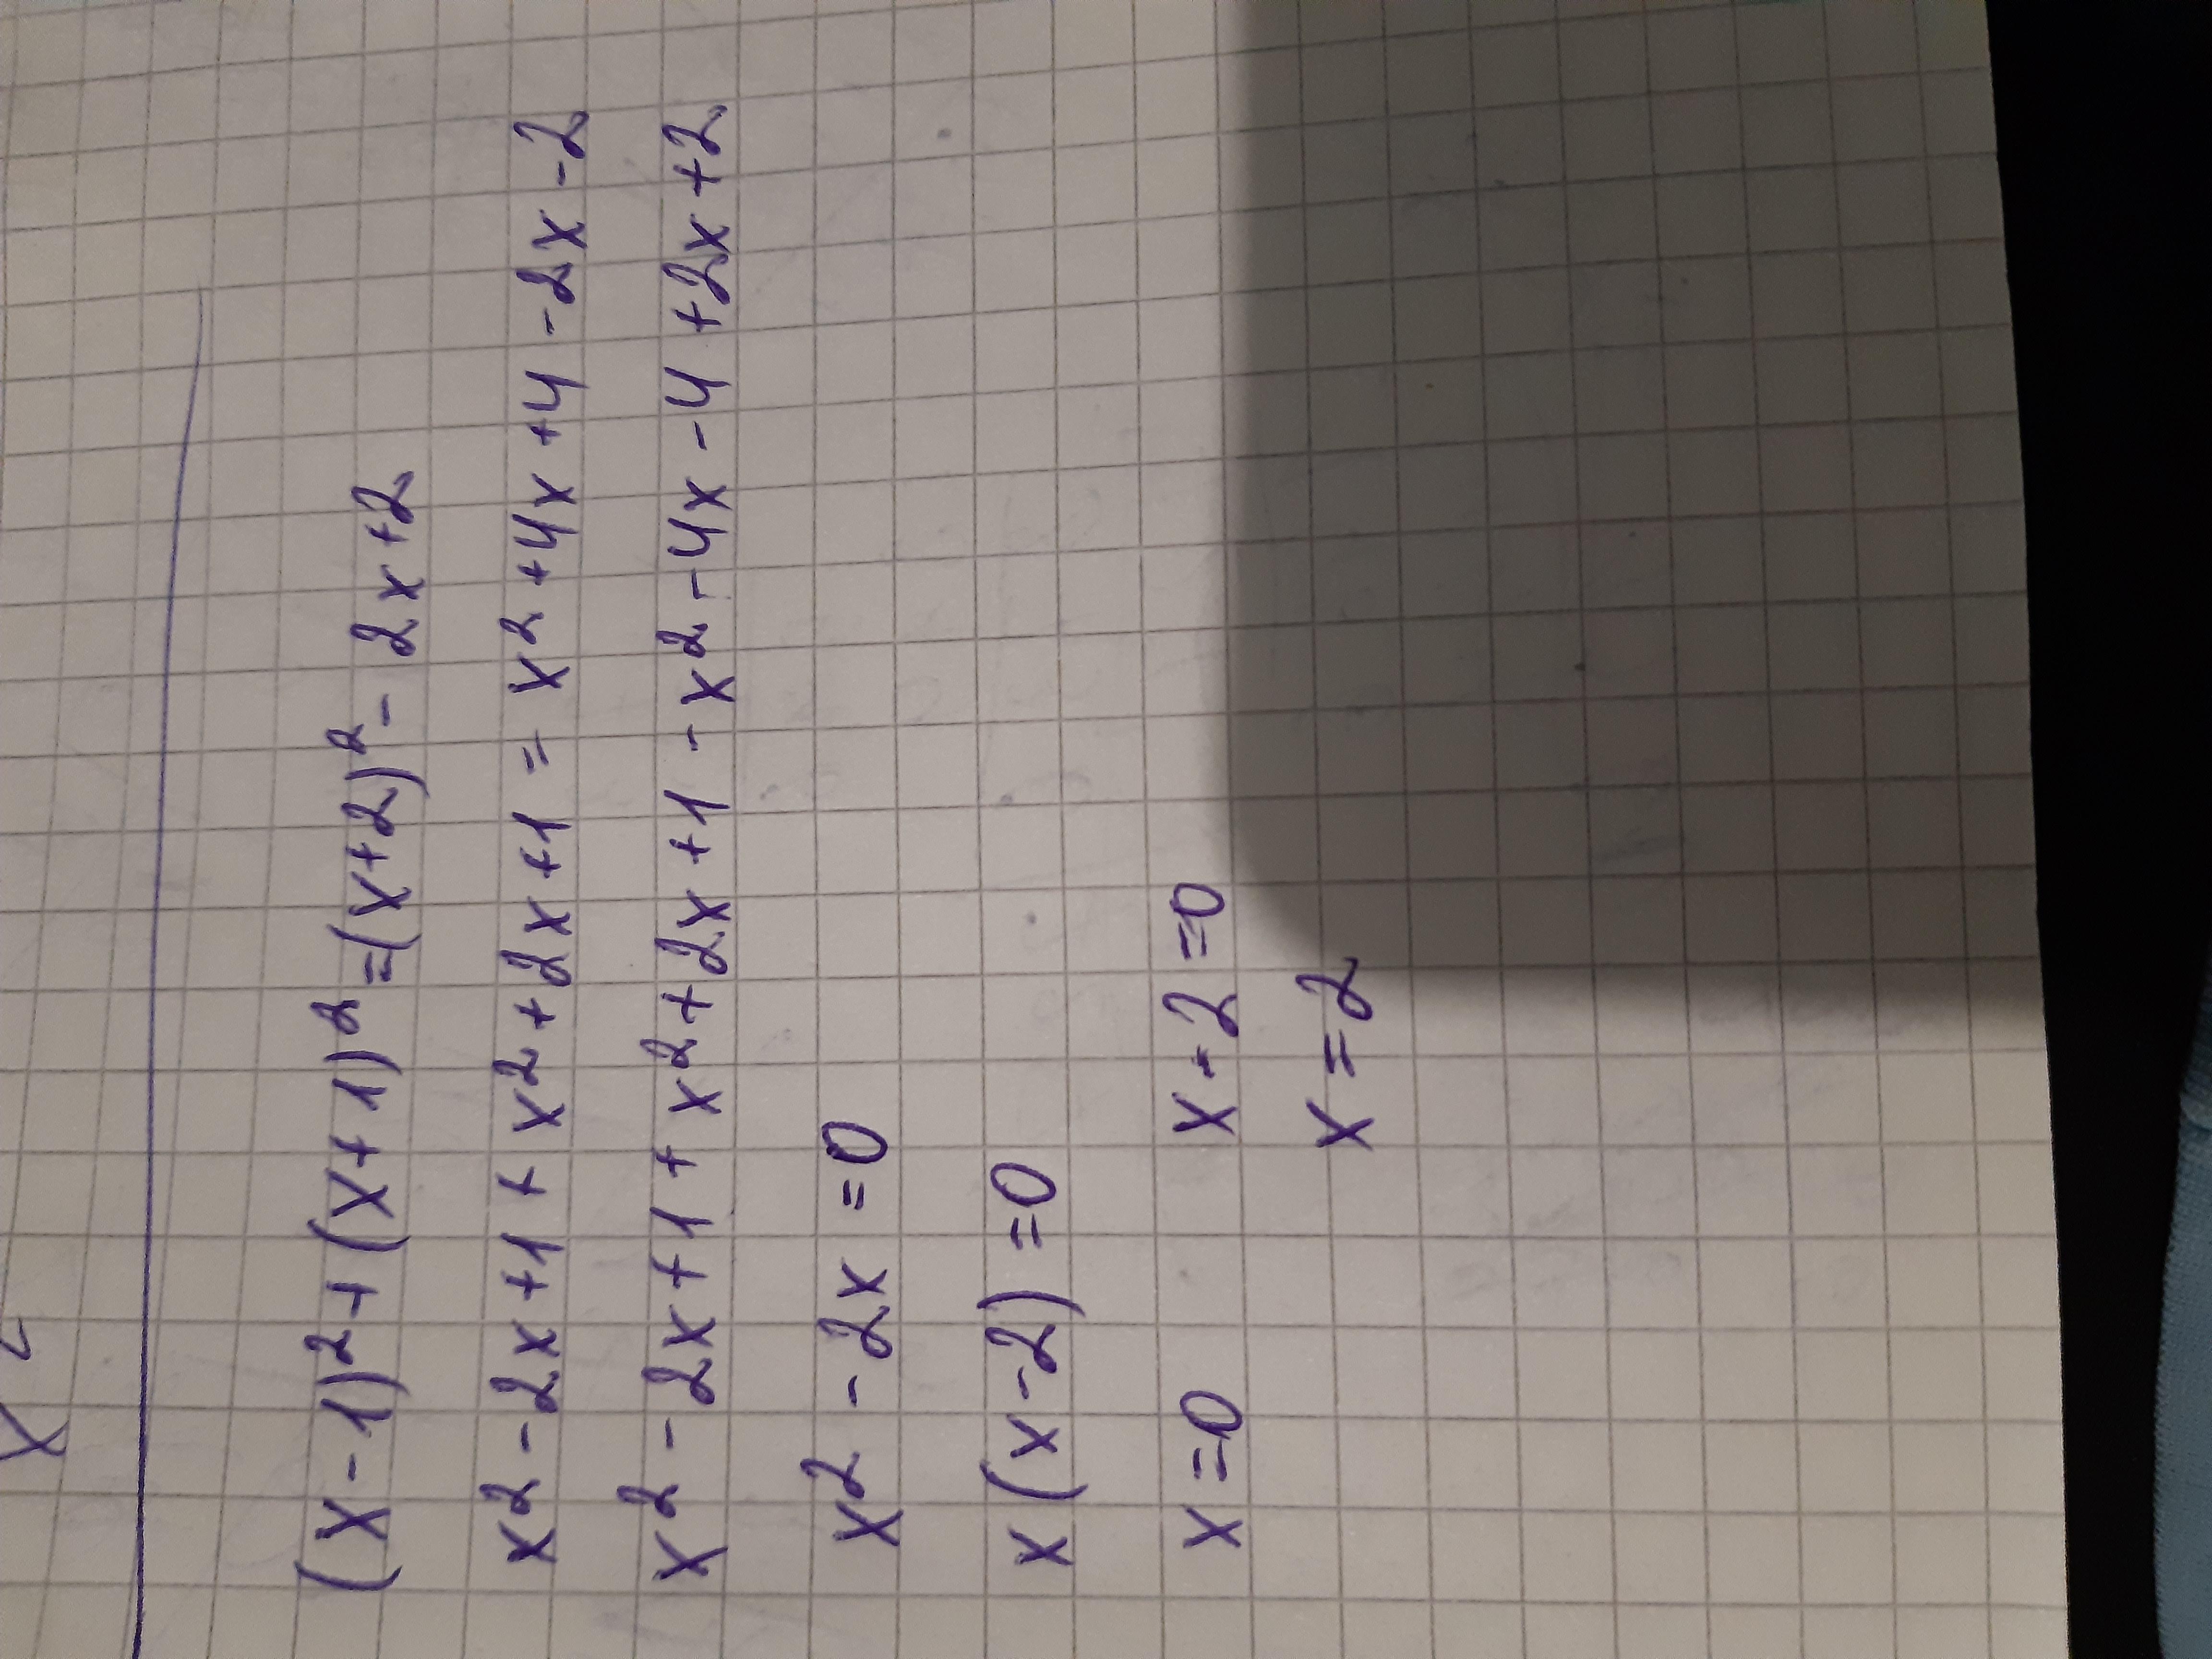 x²
(x-1)²+(x+1)²=(x+2)²-2x+2
x²-2x+1+x²+2x+1=x²+4x+4-2x-2
x²-2x+1+x²+2x+1-x²-4x-4+2x+2
x²-2x=0
x(x-2)=0
x=0 x-2=0
x=2